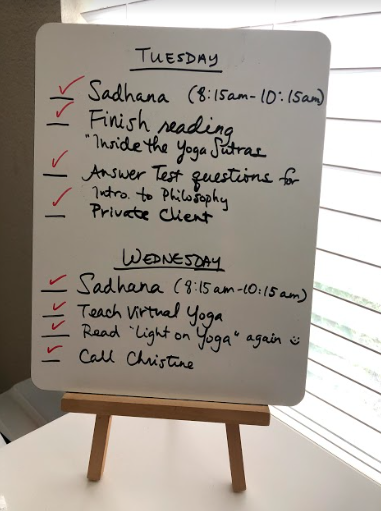 TUESDAY
Sadhana (8:15am-10:15am)
Finish reading
"Inside the Yoga Sutras
Answer Test questions for
Intro. to Philosophy
Private Client
WEDNESDAY
Sadhana (8:15am-10:15am)
Teach Virtual Yoga
Read "Light on Yoga" again
Call Christine